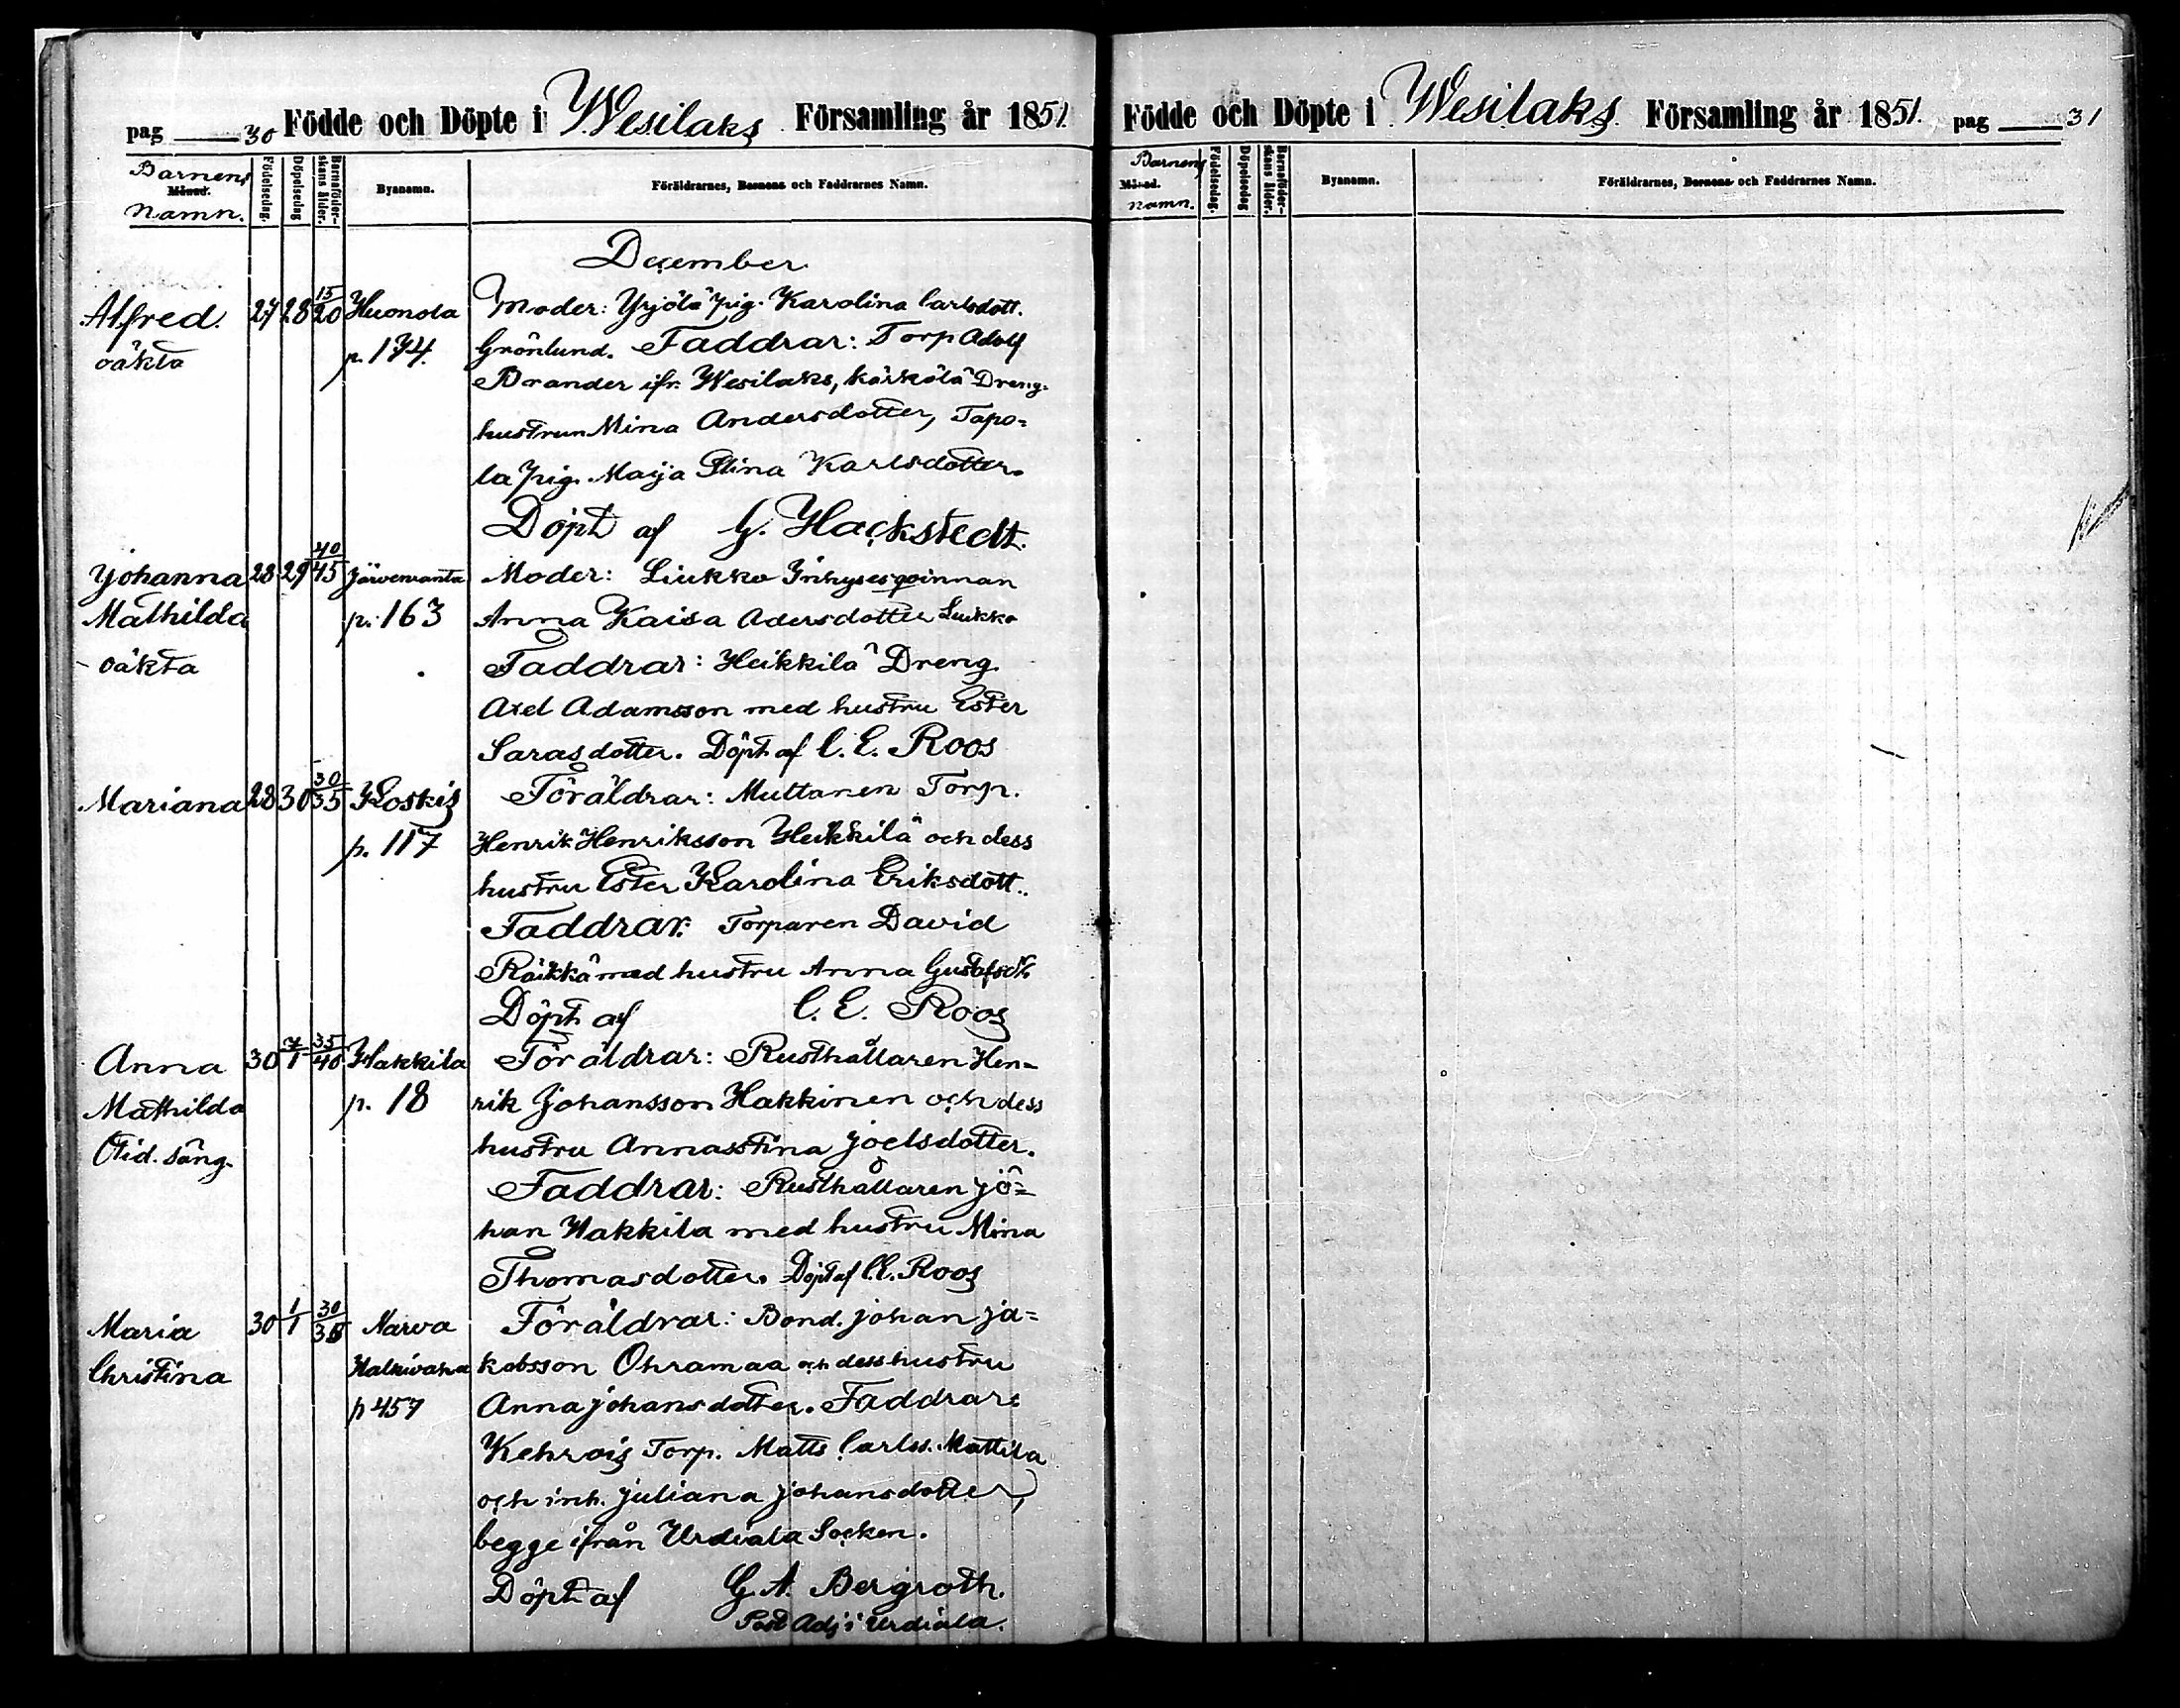 pag 30 Födde och Döpte i Wesilaks Församling år 1851.
Barnens Månad. Namn. Födelsedag. Döpelsedag Barnaföderskans ålder. Bynamn. Föräldrarnes, Barnens och Faddrarnes Namn.
December
Alfred. 27 28 15/20 Huonola Moder: Yrjölä pig. Karolina Carlsdott.
oäkta p. 174. Grönlund. Faddrar: Torp Adolf
Brander ifr. Wesilaks, Kärkölä Dreng.
hustrun Mina Andersdotter, Tapo=
la pig. Maija Stina Karlsdotter.
Döpt af G. Hackstedt.
Johanna 28 29 40/45 Järvenranta Moder: Liukko Inhyseqvinnan
Mathilda p. 163 Anna Kaisa Adersdotter Liukko
oäkta Faddrar: Heikkilä Dreng.
Axel Adamsson med hustru Ester
Sarasdotter. Döpt af C. E. Roos
Mariana 28 30 30/35 Koskis Föräldrar: Multanen Torp.
p. 117 Henrik Henriksson Heikkilä och dess
hustru Ester Karolina Eriksdott..
Faddrar: Torparen David
Räikkä med hustru Anna Gustafsdr
Döpt af C. E. Roos
Anna 30 1/1 35/40 Hakkila Föräldrar: Rusthållaren Hen=
Mathilda p. 18 rik Johansson Hakkinen och dess
Otid. säng. hustru Annastina Joelsdotter.
Faddrar: Rusthållaren Jo=
han Hakkila med hustru Mina
Thomasdotter. Döpt af C.E. Roos
Maria 30 1/1 30/35 Narva Föräldrar: Bond. Johan Ja=
Christina Halkivaha kobsson Ohramaa och dess hustru
p 457 Anna Johansdotter. Faddrar:
Kehrois Torp. Matts Carlss. Mattila
och inh. Juliana Johansdotter,
begge ifrån Urdiala Socken.
Döpt af G. A. Bergroth.
Past Adj i Urdiala.
Födde och Döpte i Wesilaks Församling år 1851. pag 31
Barnens Månad. Namn. Födelsedag. Döpelsedag Barnaföderskans ålder. Bynamn. Föräldrarnes, Barnens och Faddrarnes Namn.